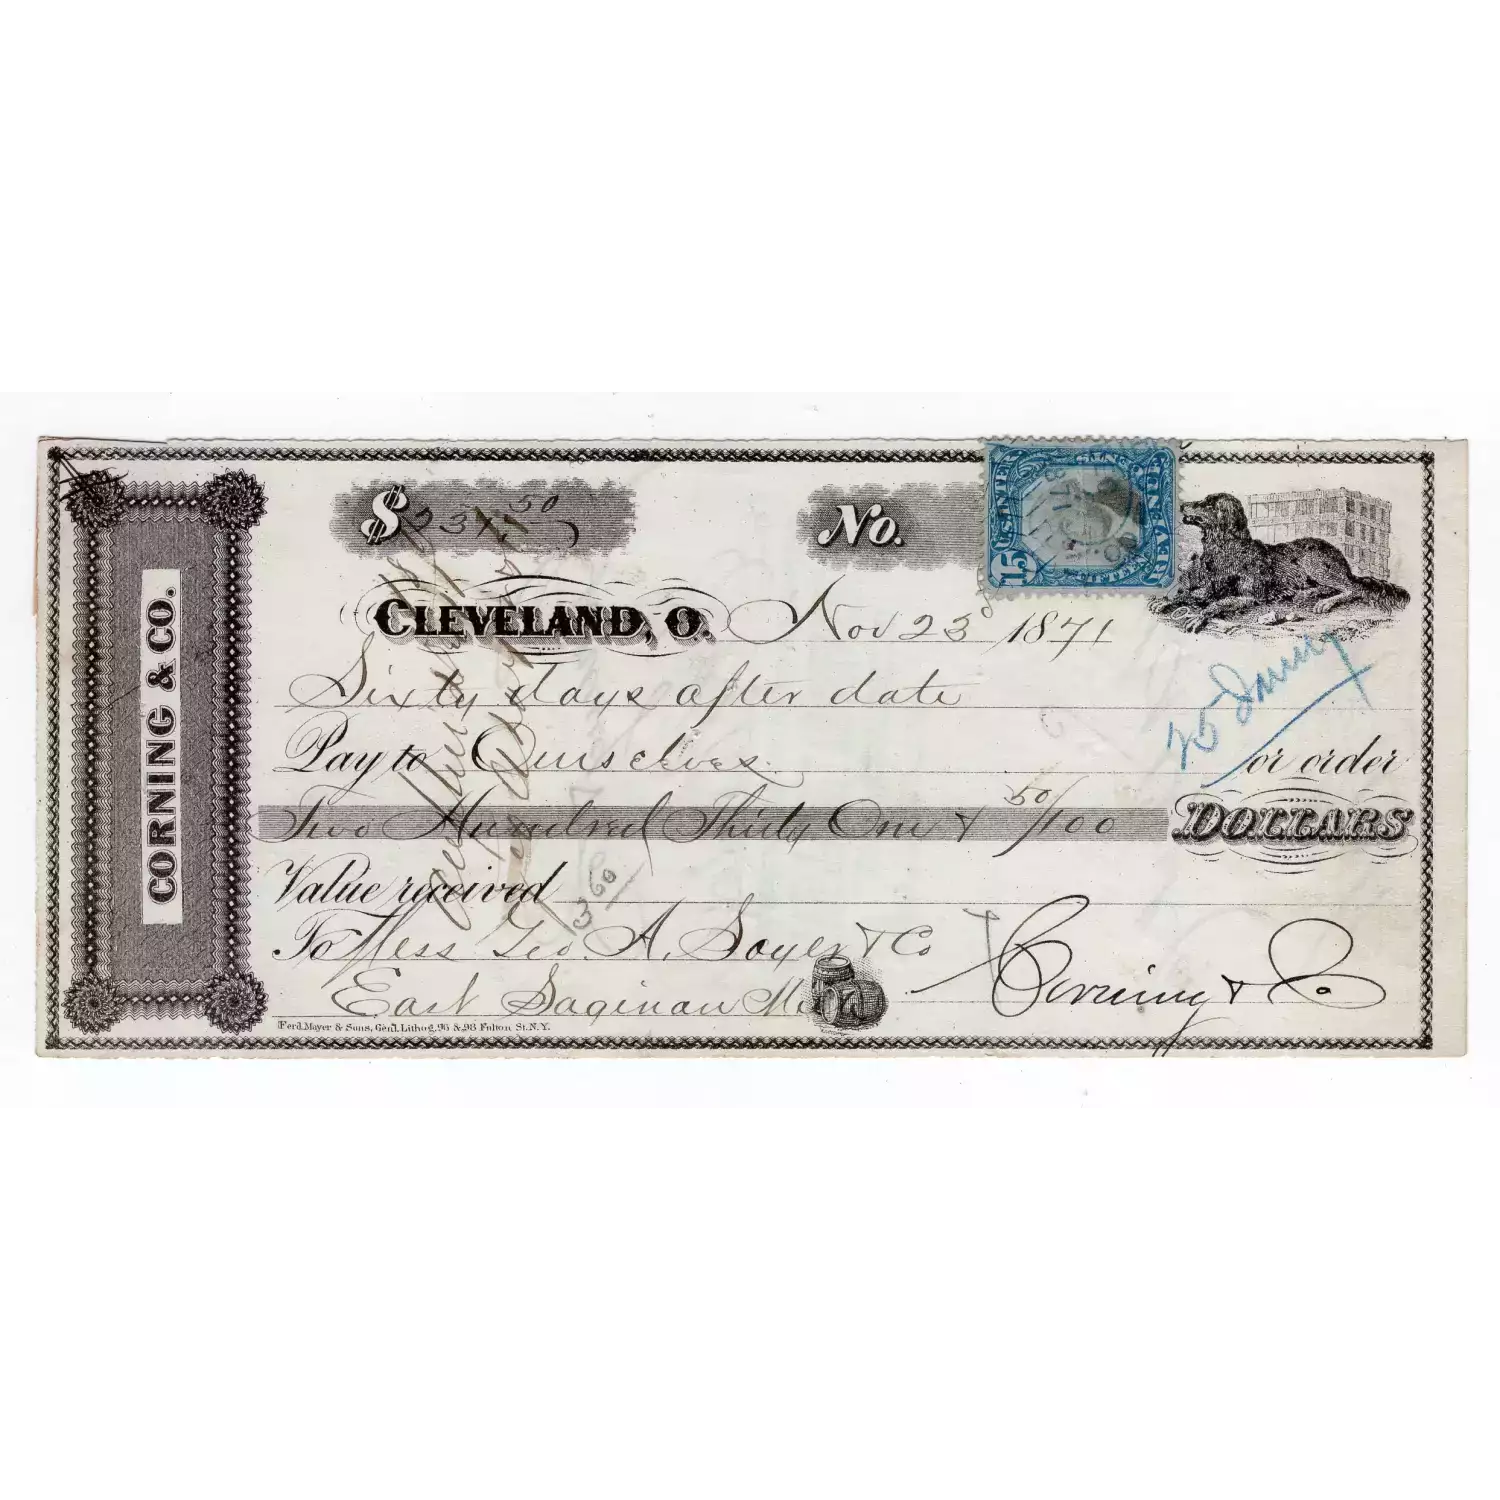 CORNING & CO.
$ 231 50
No.
U.S. INTER. REVENUE
15
CLEVELAND, O. Nov 23d 1871
Sixty days after date
Pay to Ourselves or order
25 Jany
Two Hundred Thirty One & 50/100 DOLLARS
Value received
360
To Mess Geo. A. Soyer & Co
East Saginaw Mi
Corning & Co
Ferd. Mayer & Sons, Gen'l. Lithog. 96 & 98 Fulton St. N.Y.